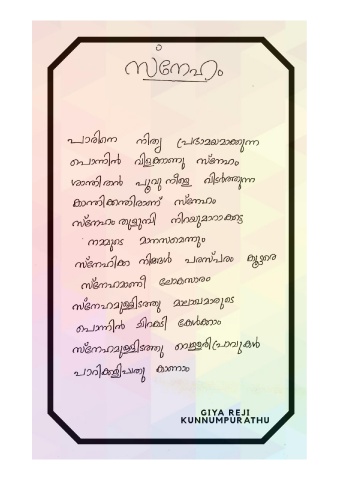 സ്നേഹം
പാരിനെ നിത്യ പ്രഭാമയമാക്കുന്ന
പൊന്നിൻ വിളക്കാണു സ്നേഹം
ശാന്തിതൻ പൂവു നീളെ വിടർത്തുന്ന
കാന്തിക്കതിരാണ് സ്നേഹം
സ്നേഹം തുളുമ്പി നിറയുമാറാകട്ടെ
നമ്മുടെ മാനസമെന്നും
സ്നേഹിക്ക നിങ്ങൾ പരസ്പരം കൂട്ടരെ
സ്നേഹമാണീ ലോകസാരം
സ്നേഹമുള്ളിടത്തു മാലാഖമാരുടെ
പൊന്നിൻ ചിറകടി കേൾക്കാം
സ്നേഹമുള്ളിടത്തു വെള്ളരിപ്രാവുകൾ
പാറിക്കളിപ്പതു കാണാം
GIYA REJI
KUNNUMPURATHU